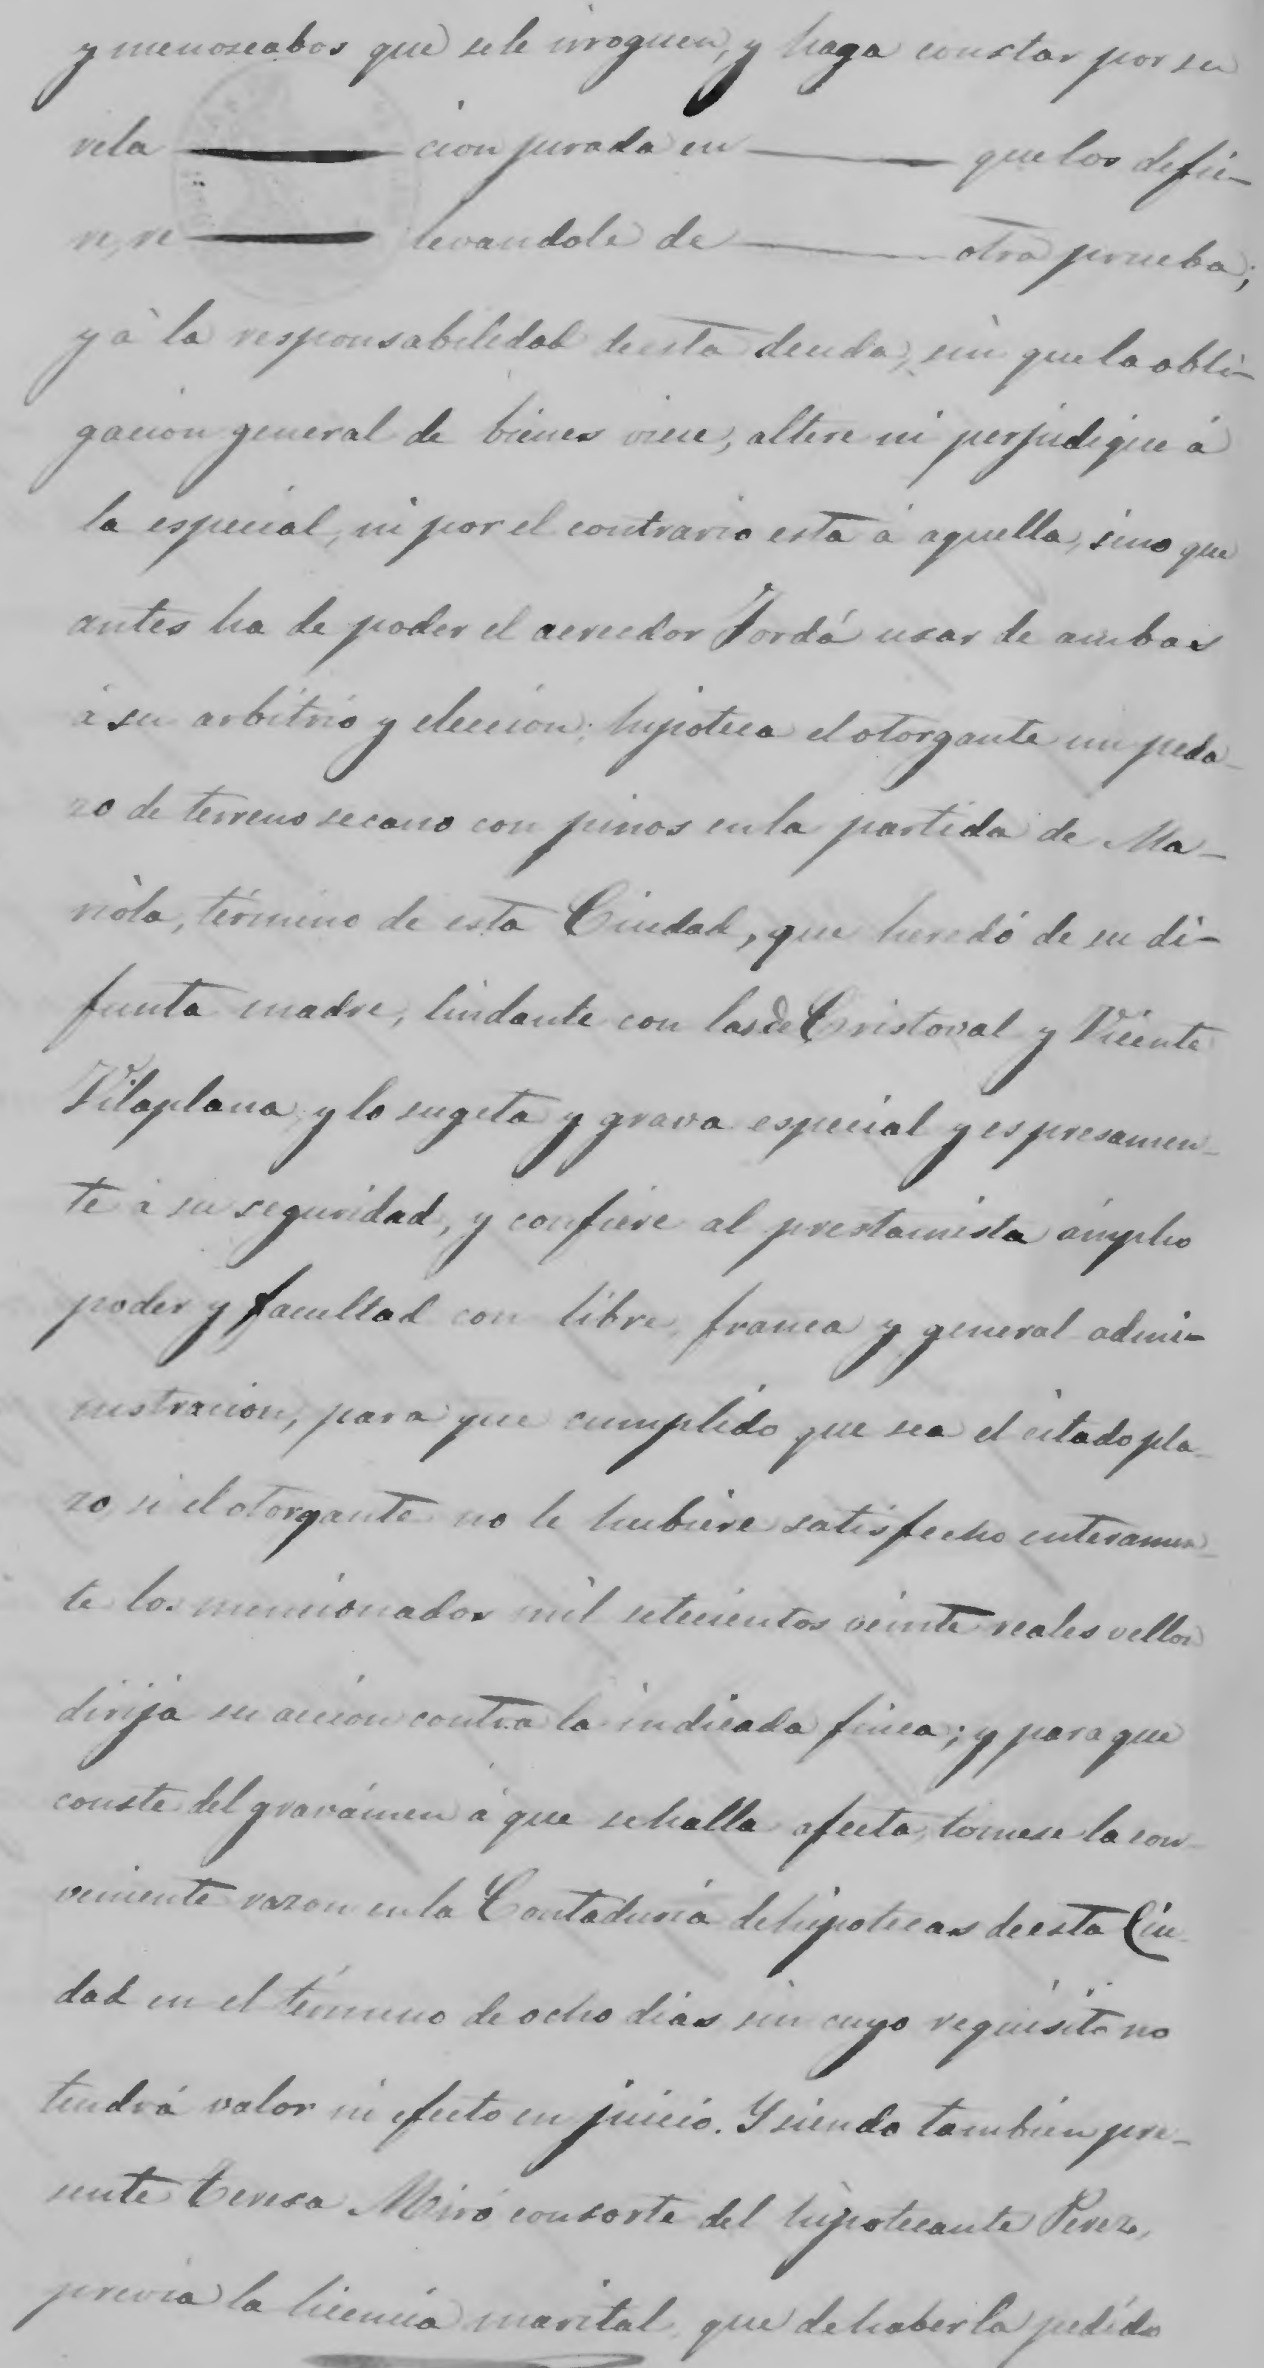 y menoscabos que se le irroguen, y haga constar por su
rela ——— cion jurada en ——— que los defie-
re, re ——— levandole de ——— otra prueba;
y à la responsabilidad de esta deuda, sin que la obli-
gacion general de bienes vicie, altere ni perjudique á
la especial, ni por el contrario esta á aquella, sino que
antes ha de poder el acreedor Jordá usar de ambas
á su arbitrio y eleccion; hipoteca el otorgante un peda-
zo de terreno secano con pinos en la partida de Ma-
riola, término de esta Ciudad, que heredó de su di-
funta madre, lindante con las de Cristoval y Vicente
Vilaplana, y lo sugeta y grava especial y espresamen-
te á su seguridad, y confiere al prestamista ámplio
poder y facultad con libre, franca y general admi-
nistracion, para que cumplido que sea el citado pla-
zo, si el otorgante no le hubiere satisfecho enteramen-
te los mencionados mil setecientos veinte reales vellon
dirija su accion contra la indicada finca; y para que
conste del gravámen á que se halla afecta, tomese la con-
veniente razon en la Contaduria de hipotecas de esta Ciu-
dad en el término de ocho dias sin cuyo requisito no
tendrá valor ni efecto en juicio. Y siendo tambien pre-
sente Teresa Miró consorte del hipotecante Perez,
previa la licencia marital, que de haberla pedido